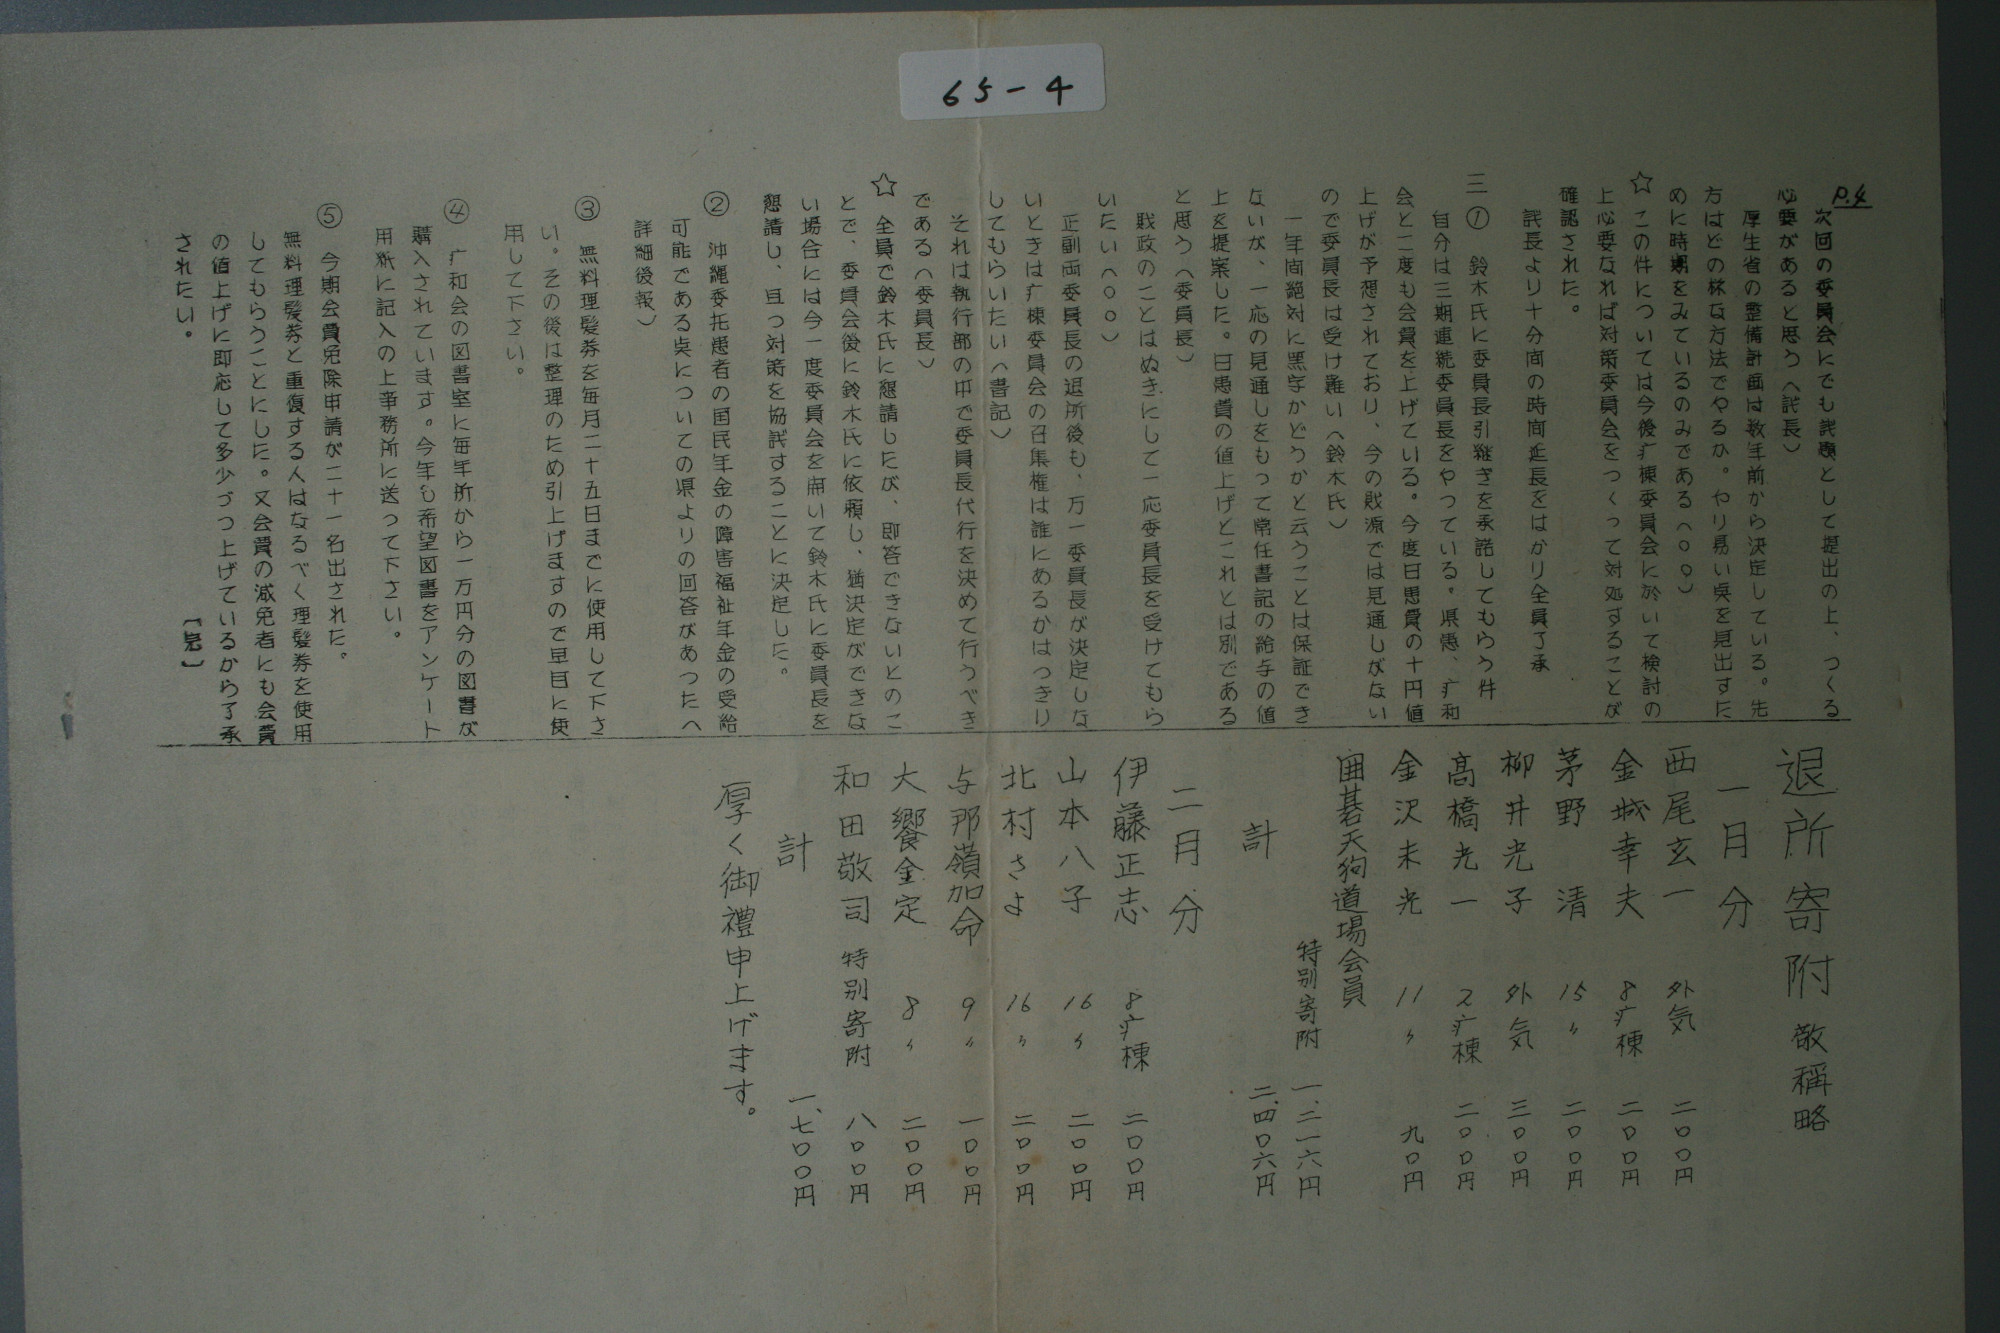 65-4
P.4
次回の委員会にでも議題として提出の上、つくる
必要があると思う(議長)
厚生省の整備計画は数年前から決定している。先
方はどの様な方法でやるか。やり易い点を見出すた
めに時期をみているのみである(〇〇)
☆この件については今後疒棟委員会に於いて検討の
上必要なれば対策委員会をつくって対処することが
確認された。
議長より十分間の時間延長をはかり全員了承
三① 鈴木氏に委員長引継ぎを承諾してもらう件
自分は三期連続委員長をやっている。県患、疒和
会と二度も会費を上げている。今度日患費の十円値
上げが予想されており、今の財源では見通しがない
ので委員長は受け難い(鈴木氏)
一年間絶対に黒字かどうかと云うことは保証でき
ないが、一応の見通しをもって常任書記の給与の値
上を提案した。日患費の値上げとこれとは別である
と思う(委員長)
財政のことはぬきにして一応委員長を受けてもら
いたい(〇〇)
正副両委員長の退所後も、万一委員長が決定しな
いときは疒棟委員会の召集権は誰にあるかはっきり
してもらいたい(書記)
それは執行部の中で委員長代行を決めて行うべき
である(委員長)
☆ 全員で鈴木氏に懇請したが、即答できないとのこ
とで、委員会後に鈴木氏に依頼し、猶決定ができな
い場合には今一度委員会を開いて鈴木氏に委員長を
懇請し、且つ対策を協議することに決定した。
② 沖縄委托患者の国民年金の障害福祉年金の受給
可能である点についての県よりの回答があった(
詳細後報)
③ 無料理髪券を毎月二十五日までに使用して下さ
い。その後は整理のため引上げますので早目に使
用して下さい。
④ 疒和会の図書室に毎年所から一万円分の図書が
購入されています。今年も希望図書をアンケート
用紙に記入の上事務所に送って下さい。
⑤ 今期会員免除申請が二十一名出された。
無料理髪券と重復する人はなるべく理髪券を使用
してもらうことにした。又会員の減免者にも会費
の値上げに即応して多少づつ上げているから了承
されたい。
退所寄附 敬稱略
一月分
西尾玄一 外気 二〇〇円
金城幸夫 8疒棟 二〇〇円
茅野 清 15〃 二〇〇円
柳井光子 外気 三〇〇円
髙橋光一 2疒棟 二〇〇円
金沢未光 11〃 九〇円
囲碁天狗道場会員
特别寄附 一、二一六円
計 二、四〇六円
二月分
伊藤正志 8疒棟 二〇〇円
山本八子 16〃 二〇〇円
北村さよ 16〃 二〇〇円
与那嶺加命 9〃 一〇〇円
大饗金定 8〃 二〇〇円
和田敬司 特别寄附 八〇〇円
計 一、七〇〇円
厚く御禮申上げます。